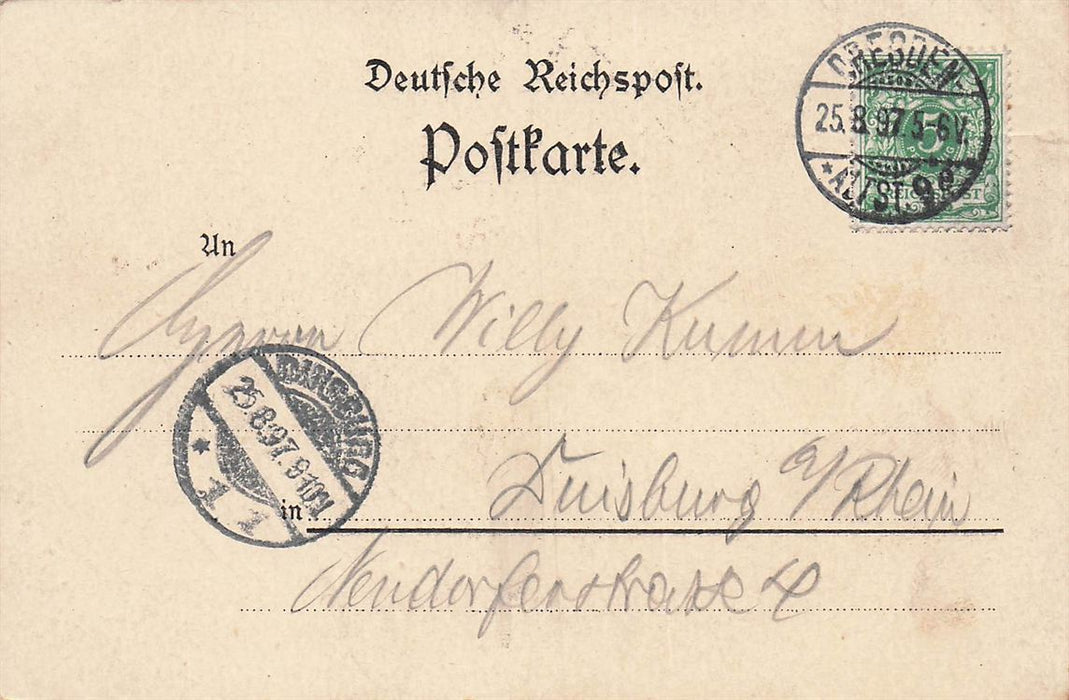 Deutsche Reichspost.
Postkarte.
DRESDEN
25.8.97 5-6V.
*ALTST. 9e.
5
PFENNIG
REICHSPOST
An
Herrn Willy
DUISBURG
25.8.97. 9-10N
* 1 1
in Duisburg a/Rhein
Neudorferstrasse 4